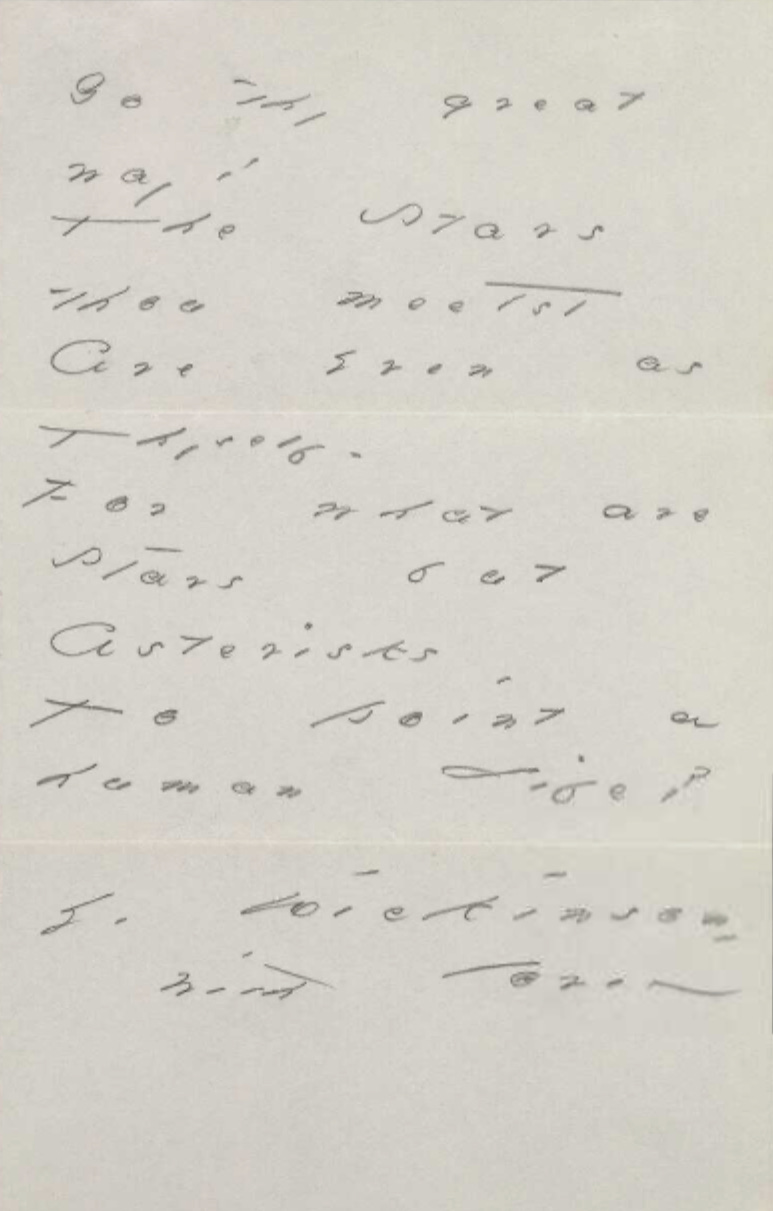 Go thy great
way!
The Stars
thou meetst
Are Even as
Thyself -
For what are
Stars but
Asterisks
To point a
human Life?
E. Dickinson
with love -